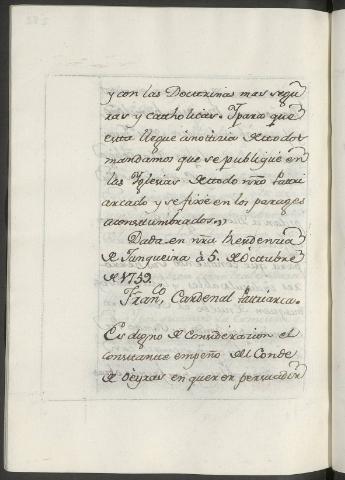 y con las Doctrinas mas segu
ras y catholicas. Y para que
esta llegue à noticia de todos
mandamos que se publique en
las Yglesias de todo nro Patri
arcado y se fixe en los parages
acostumbrados.
Dada en nra Residenzia
de Junqueira à 5. de Octubre
de 1759.
Franco, Cardenal Patriarca.
Es digno de consideracion el
constante empeño del Conde
de Oeyras en querer persuadir